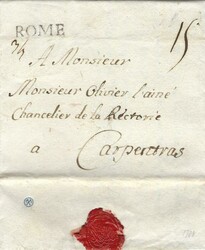 ROME
A Monsieur
Monsieur Olivier L'ainé
Chancelier de la Réctorie
a Carpentras